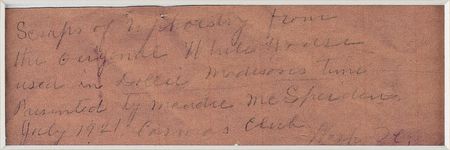 Scraps of Upholstry from
the original White House
used in Dollie Madison's time
Presented by Maudie McSpadden
July 1921 Cosmos Club